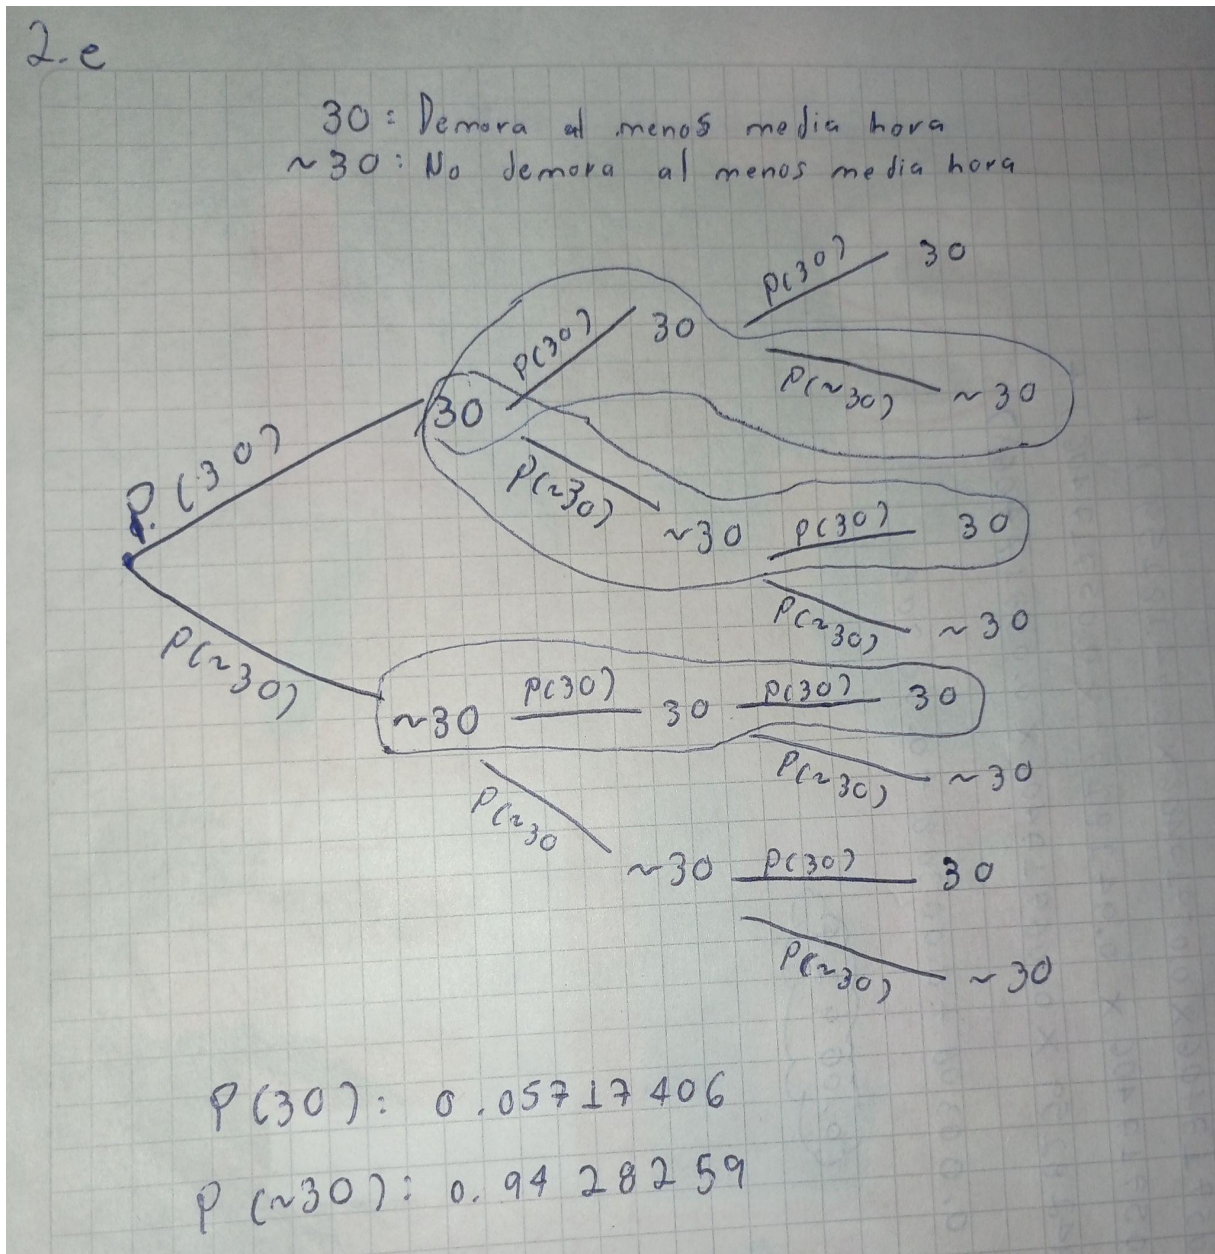 2.e
30: Demora al menos media hora
~30: No demora al menos media hora
P(30) 30
P(30) 30
P(~30) ~30
30
P(30)
P(~30) ~30 P(30) 30
P(~30) ~30
P(~30)
~30 P(30) 30 P(30) 30
P(~30) ~30
P(~30
~30 P(30) 30
P(~30) ~30
P(30): 0.05717406
P(~30): 0.94 28259